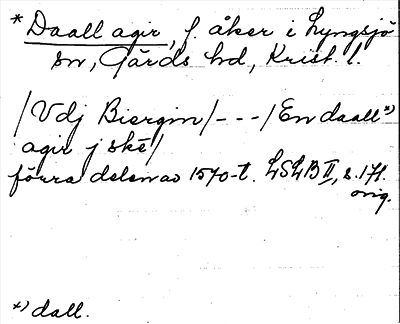 * Daall agir, f. åker i Lyngsjö
sn, Gärds hd, Krist. l.
/Vdj Biergin/---/En daall *)
agir j skė/
förra delen av 1570-t. LSLB II, s. 171.
orig.
*) dall.